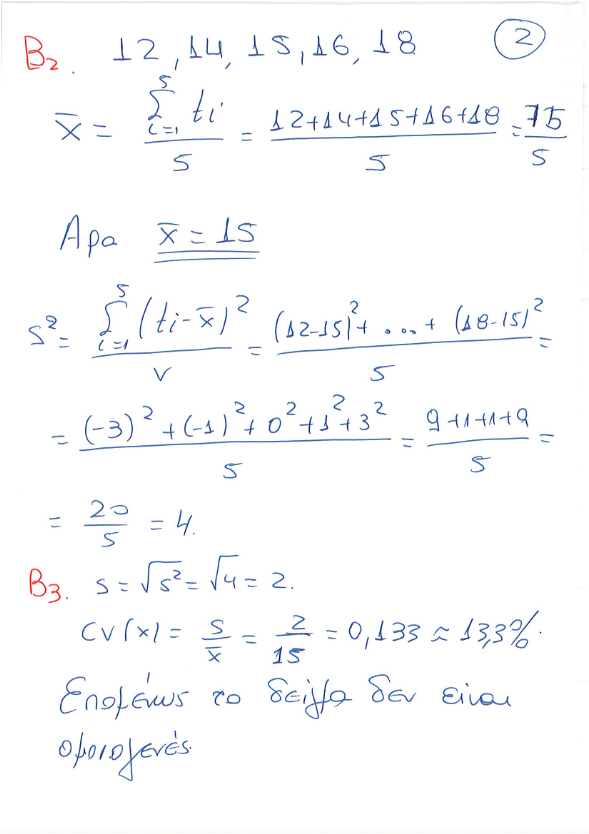 ②
B₂. 12, 14, 15, 16, 18
x̄ = (Σ_{i=1}^{5} ti)/5 = (12+14+15+16+18)/5 = 75/5
Άρα x̄ = 15
s² = (Σ_{i=1}^{5} (ti-x̄)²)/ν = ((12-15)² + .... + (18-15)²)/5 =
= ((-3)² + (-1)² + 0² + 1² + 3²)/5 = (9+1+1+9)/5 =
= 20/5 = 4.
B₃. s = √s² = √4 = 2.
CV(x) = s/x̄ = 2/15 = 0,133 ≈ 13,3%.
Επομένως το δείγμα δεν είναι
ομοιογενές.